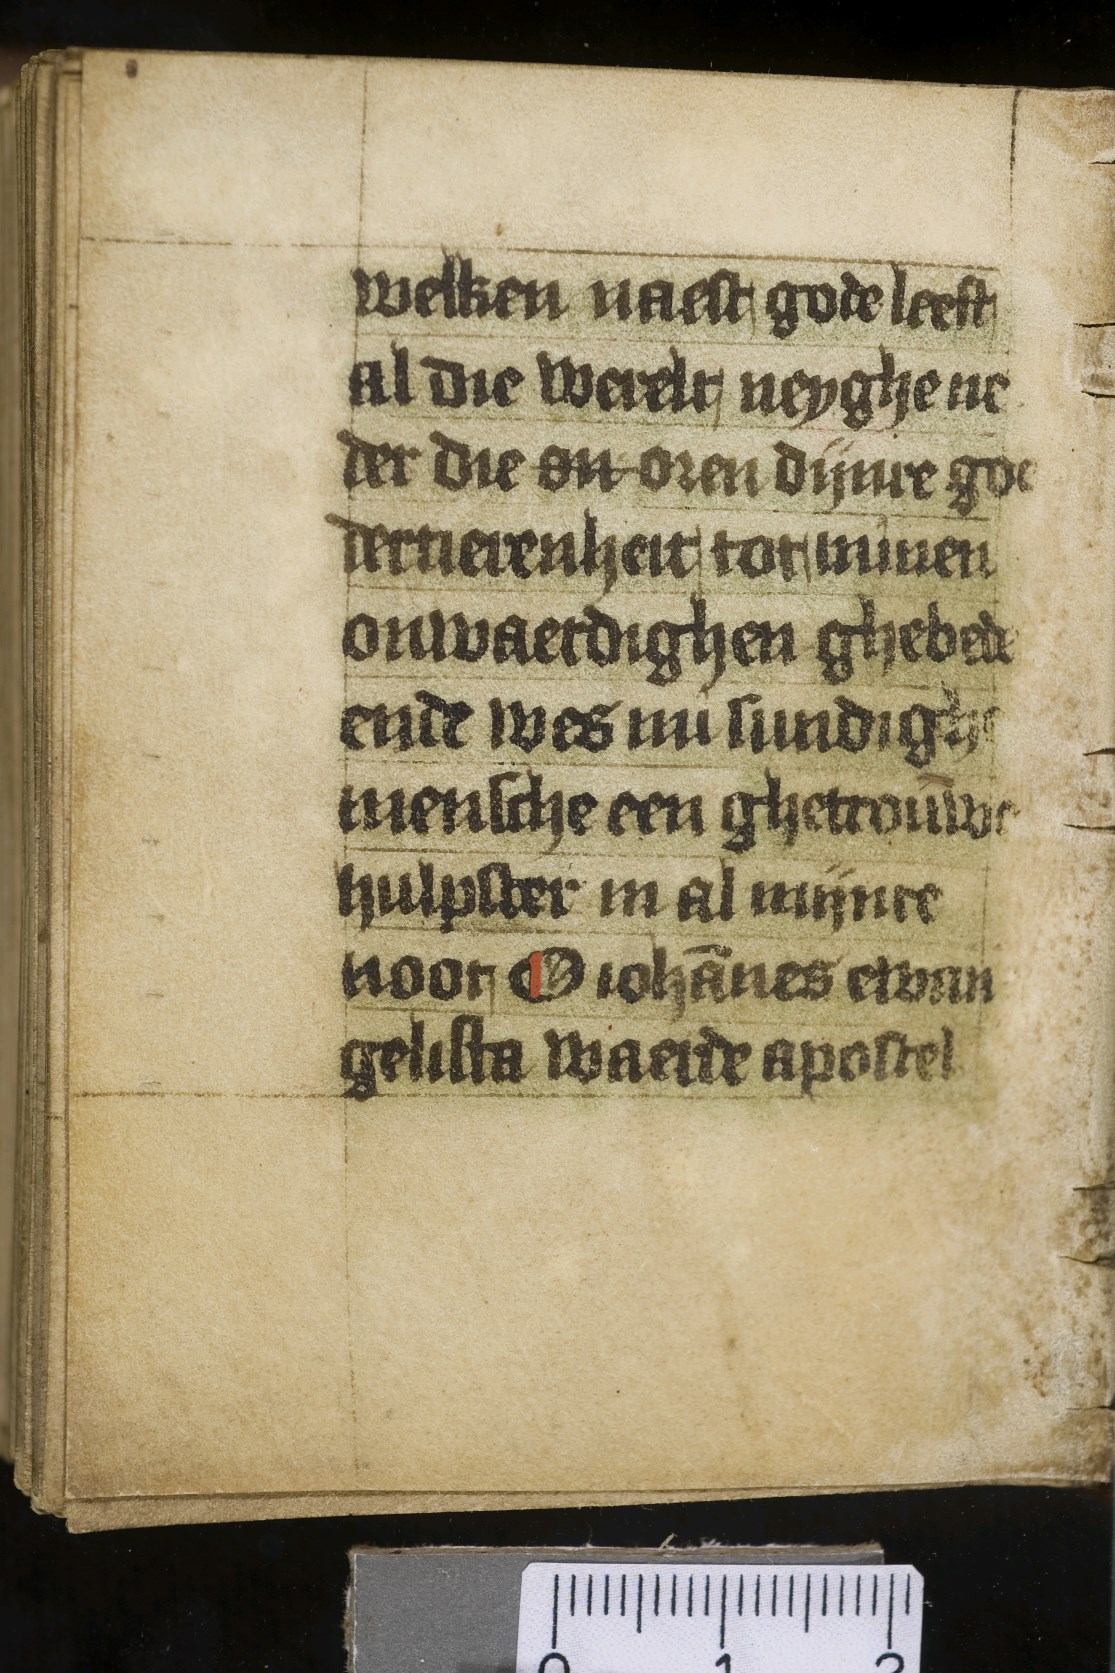 welken naest gode leeft
al die werelt neyghe ne
der die on oren dijnre goe
dertierenheit tot minen
onwaerdighen ghebede
ende wes mi sundighe
mensche een ghetrouwe
hulpster in al mijnre
noot O iohānes ewan
gelista waerde apostel
0 1 2